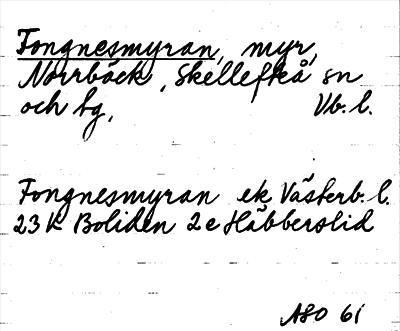 Fongnesmyran, myr,
Norrbäck, Skellefteå sn
och lg, Vb. l.
Fongnesmyran ek Västerb. l.
23 K Boliden 2e Häbberslid
ASO 61